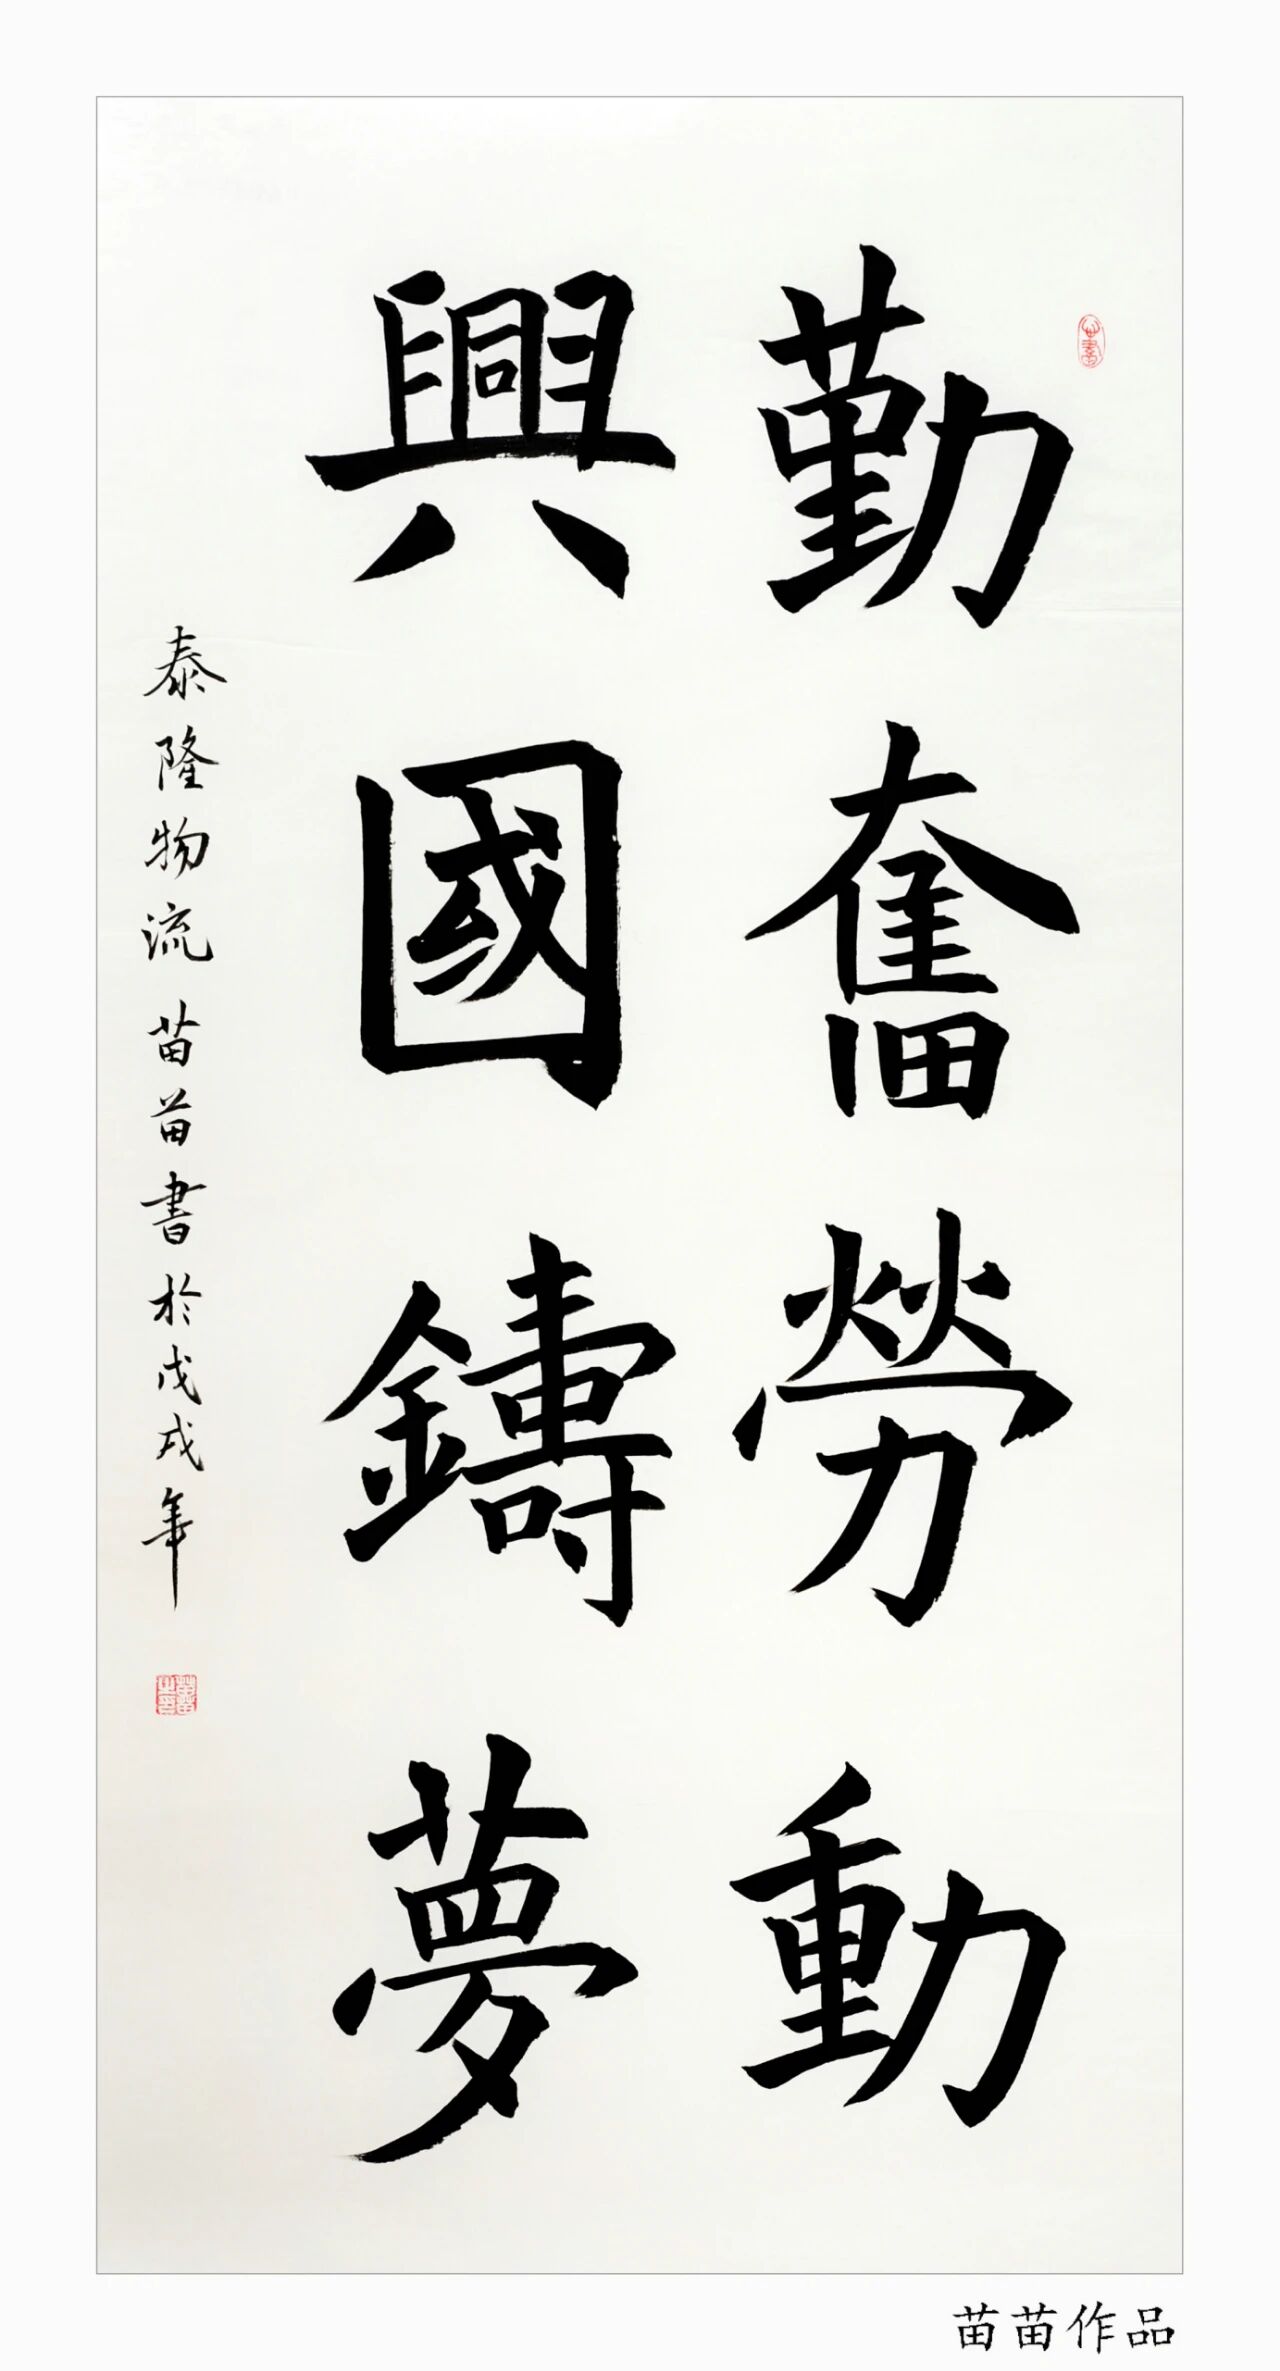 勤奮勞動
興國鑄夢
泰隆物流苗苗書於戊戌年
苗苗作品